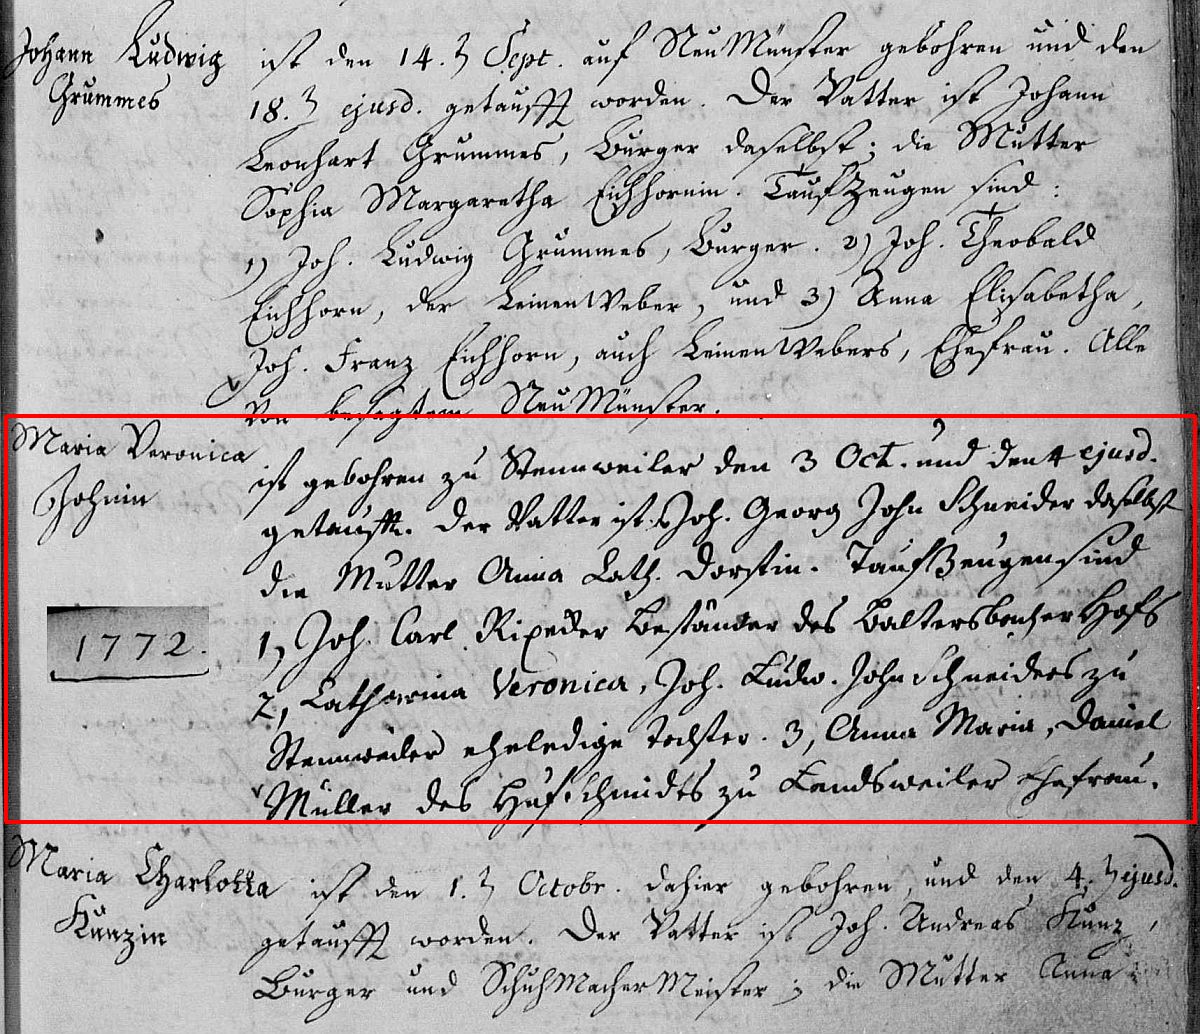 Johann Ludwig
Grummes
ist den 14.ten Sept. auf NeuMünster gebohren und den
18.ten ejusd. getaufft worden. Der Vatter ist Johann
Leonhart Grummes, Burger daselbst; die Mutter
Sophia Margaretha Eichhornin. TaufZeugen sind:
1) Joh. Ludwig Grummes, Burger. 2) Joh. Theobald
Eichhorn, der LeinenWeber, und 3) Anna Elisabetha,
Joh. Franz Eichhorn, auch LeinenWebers, Ehefrau. Alle
von besagtem NeuMünster.
Maria Veronica
Johnin
1772.
ist gebohren zu Stennweiler den 3 Oct. und den 4 ejusd.
getaufft. Der Vatter ist Joh. Georg John Schneider daselbst
die Mutter Anna Cath. Dorstin. TaufZeugen sind
1, Joh. Carl Beständer des Baltersbacher Hofs
2, Catharina Veronica, Joh. Ludw. John Schneiders zu
Stennweiler eheledige Tochter. 3, Anna Maria, Daniel
Müller des Hufschmidts zu Landsweiler Ehefrau.
Maria Charlotta
Kunzin
ist den 1.ten Octobr. dahier gebohren, und den 4.ten ejusd.
getaufft worden. Der Vatter ist Joh. Andreas Kunz,
Burger und SchuhMacherMeister; die Mutter Anna